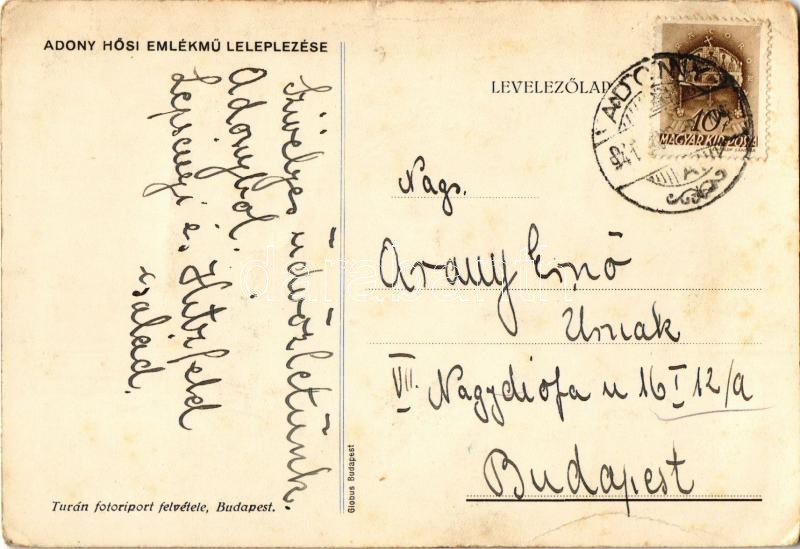 ADONY HŐSI EMLÉKMŰ LELEPLEZÉSE
LEVELEZŐLAP
ADONY
941
10f
MAGYAR KIR. POSTA
Szívélyes üdvözletünk.
Adonyból.
Lepsényi és Hitzfeld
család.
Nags.
Arany Ernő
Urnak
VII. Nagydiófa u 16 I 12/a
Budapest
Globus Budapest
Turán fotoriport felvétele, Budapest.